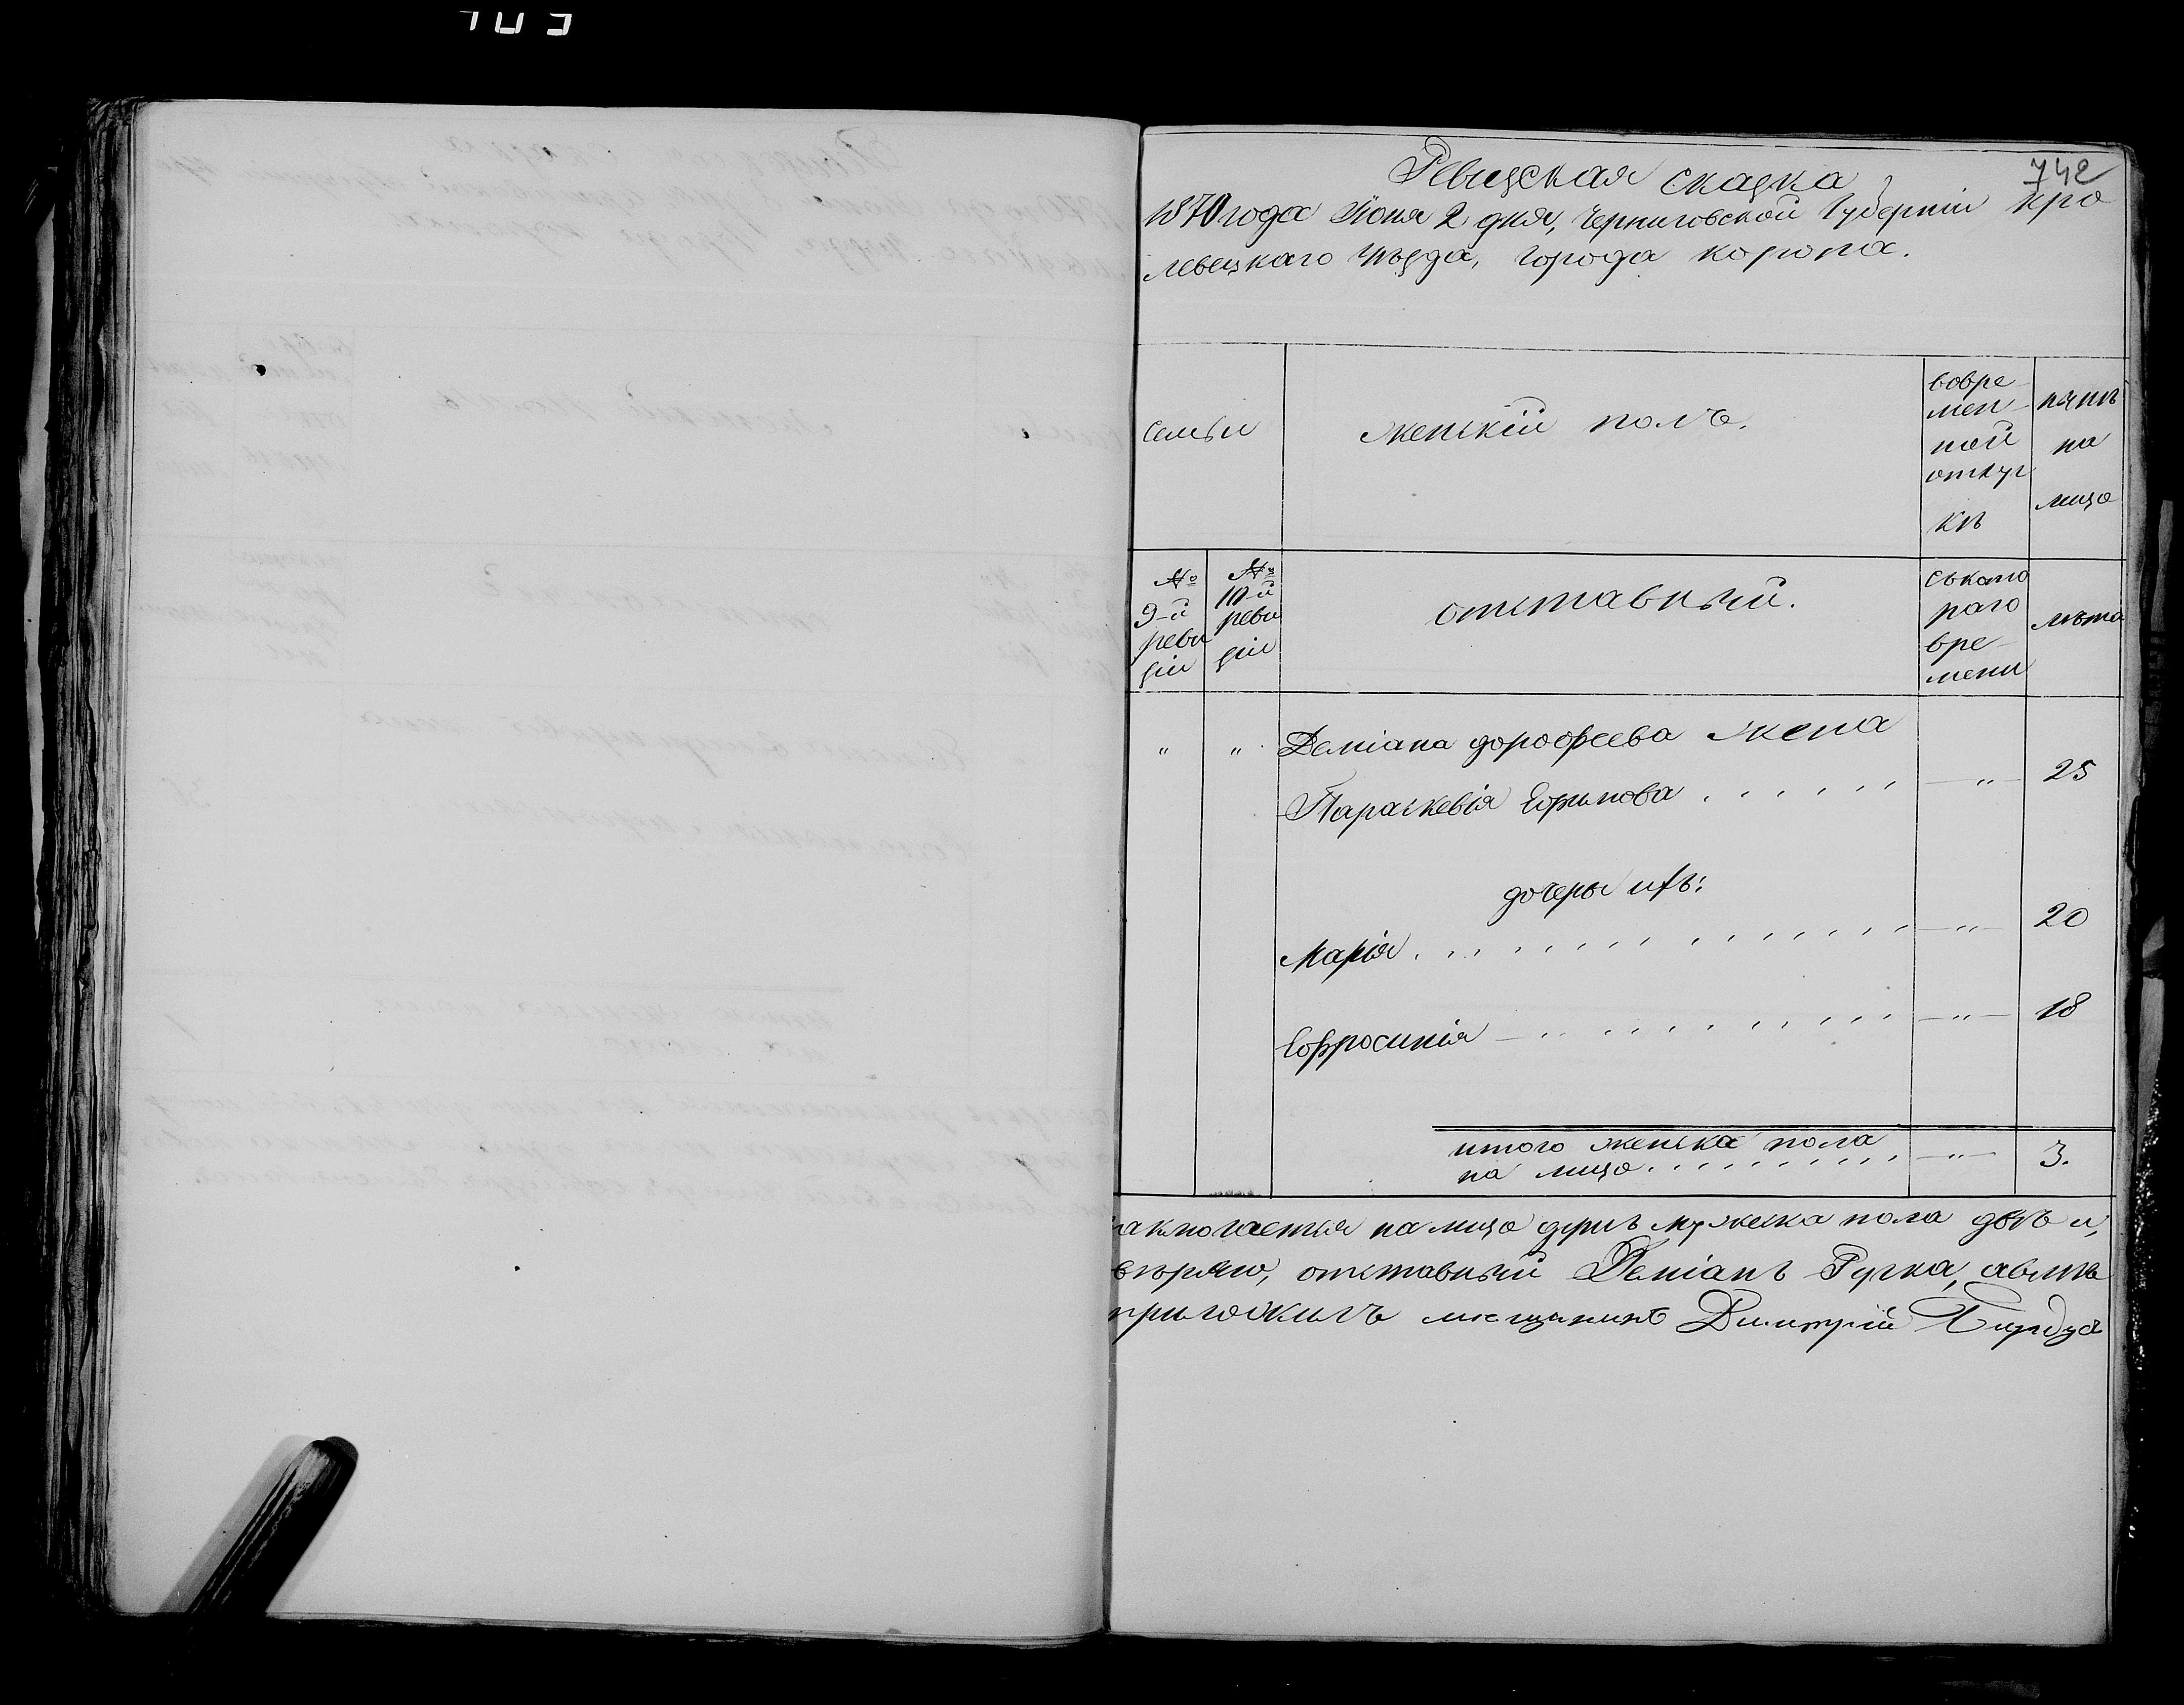 742
Ревизская сказка
1870 года Июня 2 дня, Черниговской Губерніи Кро
левецкаго Уѣзда, города Коропа.
Семьи
женскій полъ.
вовре
мен
ной
отлуч
кѣ
нынѣ
на
лицо
№
9-й
реви
зіи
№
10-й
реви
зіи
отставный.
съкото
раго
вре
мени
лѣта
" " Деміана дорофеева жена
Параскевія Ефимова . . . . . . " 25
дочеры ихъ:
Марія . . . . . . . . . . . . . . " 20
Ефросинія . . . . . . . . . . . " 18
итого женска пола
на лицо . . . . . . . . . . " 3.
аключается на лицо душъ мужеска пола двѣ и,
вѣряю, отставный Деміанъ
приложилъ мещанинъ Димитрій